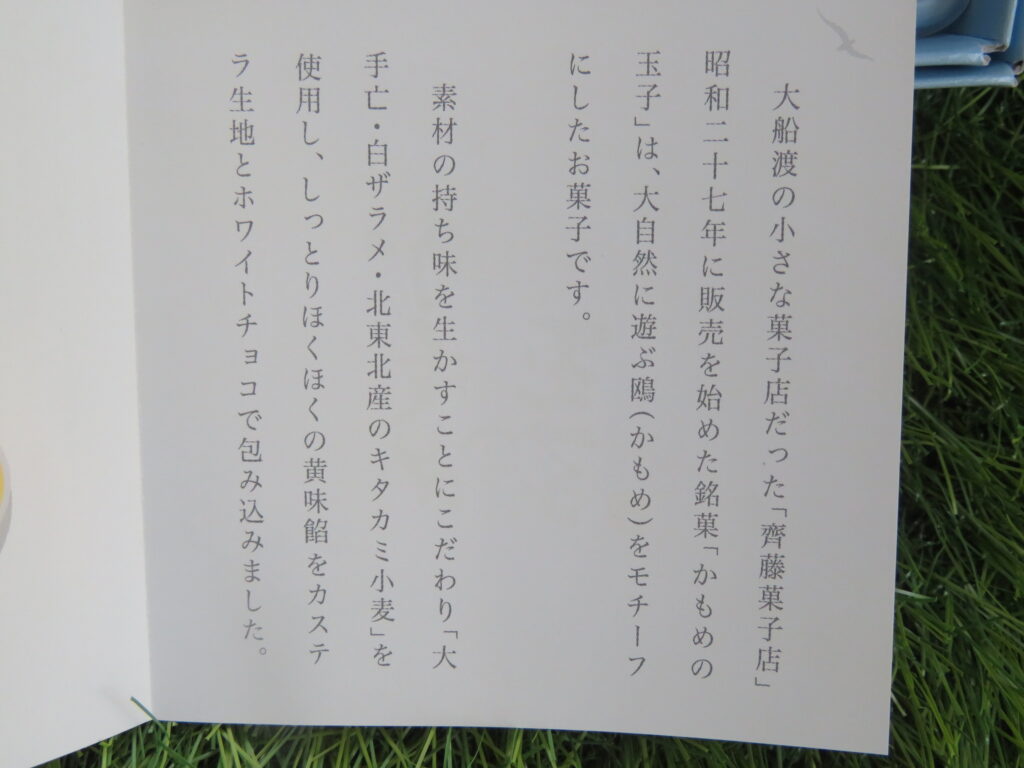 大船渡の小さな菓子店だった「齊藤菓子店」
昭和二十七年に販売を始めた銘菓「かもめの
玉子」は、大自然に遊ぶ鷗(かもめ)をモチーフ
にしたお菓子です。
素材の持ち味を生かすことにこだわり「大
手亡・白ザラメ・北東北産のキタカミ小麦」を
使用し、しっとりほくほくの黄味餡をカステ
ラ生地とホワイトチョコで包み込みました。